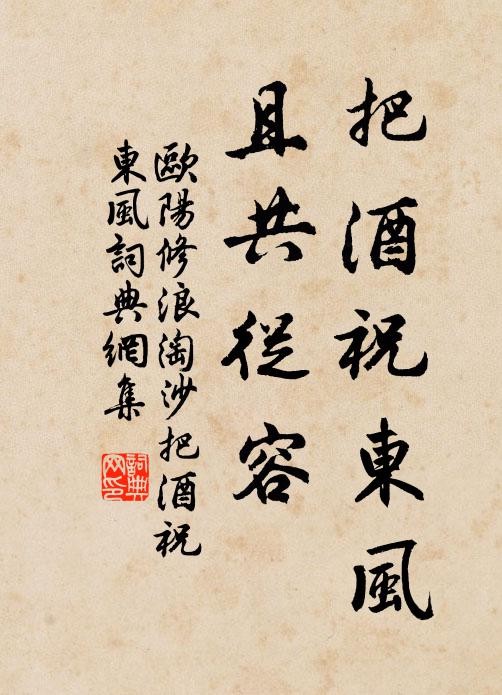 把酒祝東風
且共從容
歐陽修浪淘沙把酒祝
東風詞典網集
詞典
网印